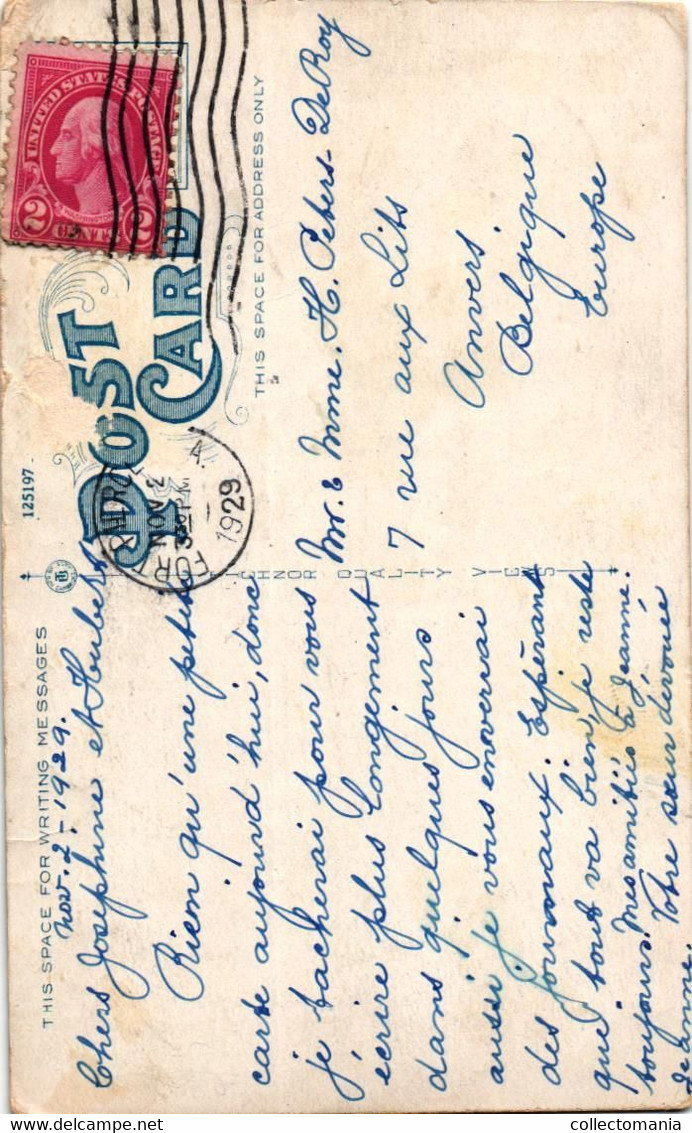 THIS SPACE FOR WRITING MESSAGES
Nov. 2 - 1929.
Chers Josephine et Hubert
Rien qu'une petite
carte aujourd'hui, donc
je tacherai pour vous
écrire plus longement
dans quelques jours
aussi je vous enverrai
des journaux. Espérant
que tout va bien, je reste
toujours. Mes amitiés à Jeanne.
Votre sœur dévouée
Jeanne.
125197
POST CARD
THIS SPACE FOR ADDRESS ONLY
UNITED STATES POSTAGE
WASHINGTON
2 CENTS 2
NOV 2
3 30 PM
1929
TICHNOR QUALITY VIEWS
Mr. & Mme. H. Peters-DeRoy
7 rue aux Lits
Anvers
Belgique
Europe
collectomania